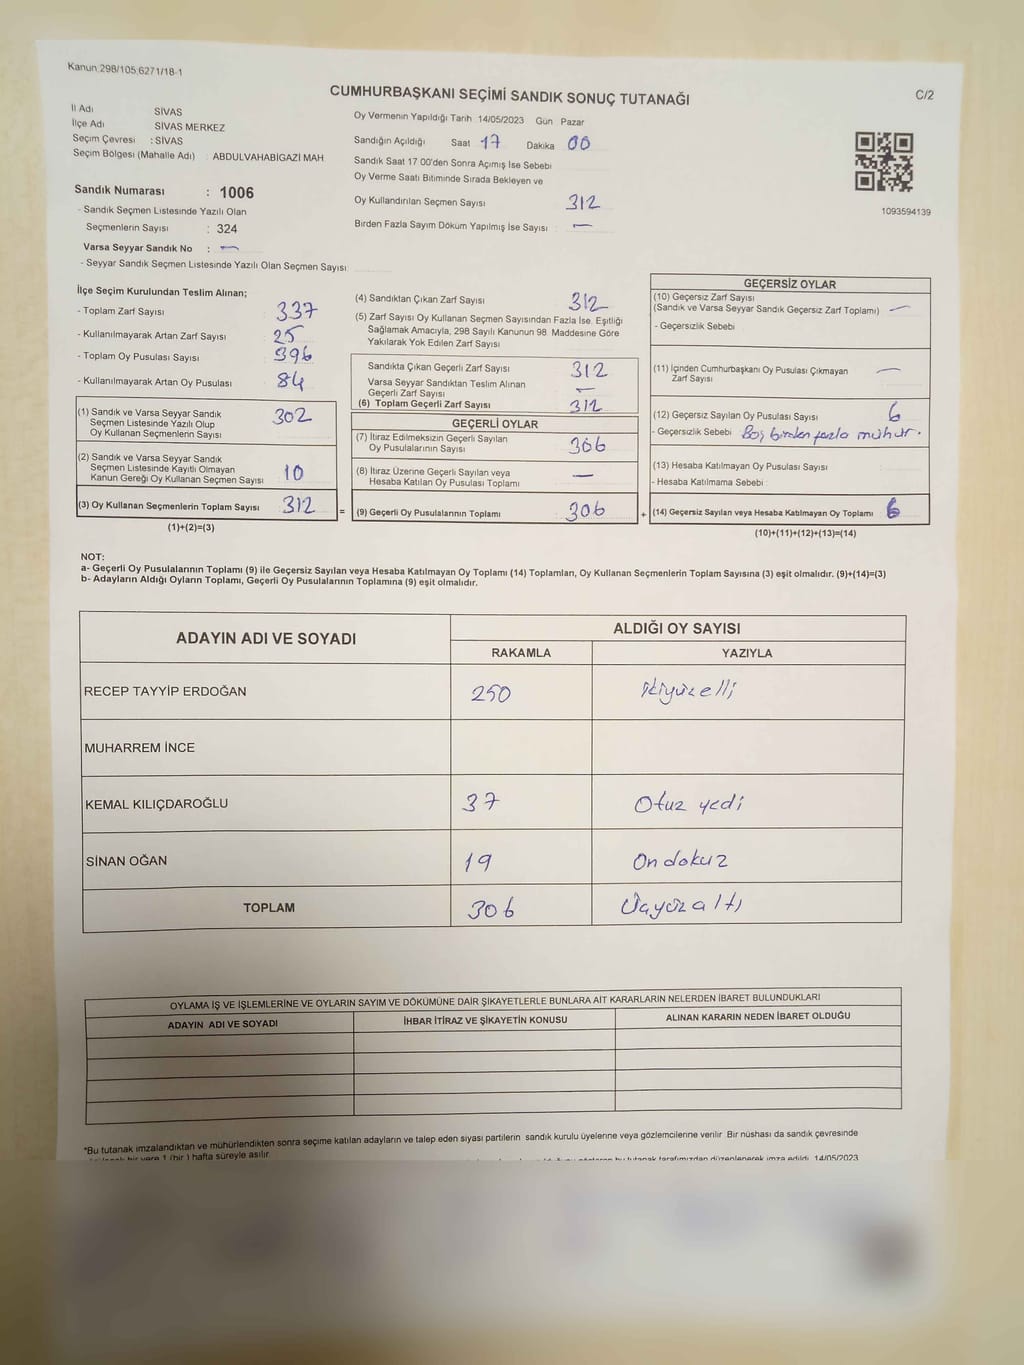 Kanun,298/105,6271/18-1
C/2
CUMHURBAŞKANI SEÇİMİ SANDIK SONUÇ TUTANAĞI
İl Adı SİVAS
İlçe Adı SİVAS MERKEZ
Seçim Çevresi : SİVAS
Seçim Bölgesi (Mahalle Adı) ABDULVAHABİGAZİ MAH
Sandık Numarası : 1006
- Sandık Seçmen Listesinde Yazılı Olan
Seçmenlerin Sayısı : 324
Varsa Seyyar Sandık No : —
- Seyyar Sandık Seçmen Listesinde Yazılı Olan Seçmen Sayısı
Oy Vermenin Yapıldığı Tarih 14/05/2023 Gün Pazar
Sandığın Açıldığı Saat 17 Dakika 00
Sandık Saat 17 00'den Sonra Açımış İse Sebebi
Oy Verme Saati Bitiminde Sırada Bekleyen ve
Oy Kullandırılan Seçmen Sayısı 312
Birden Fazla Sayım Döküm Yapılmış İse Sayısı —
1093594139
İlçe Seçim Kurulundan Teslim Alınan;
- Toplam Zarf Sayısı 337
- Kullanılmayarak Artan Zarf Sayısı 25
- Toplam Oy Pusulası Sayısı 396
- Kullanılmayarak Artan Oy Pusulası 84
(1) Sandık ve Varsa Seyyar Sandık
Seçmen Listesinde Yazılı Olup
Oy Kullanan Seçmenlerin Sayısı 302
(2) Sandık ve Varsa Seyyar Sandık
Seçmen Listesinde Kayıtlı Olmayan
Kanun Gereği Oy Kullanan Seçmen Sayısı 10
(3) Oy Kullanan Seçmenlerin Toplam Sayısı 312 =
(1)+(2)=(3)
(4) Sandıktan Çıkan Zarf Sayısı 312
(5) Zarf Sayısı Oy Kullanan Seçmen Sayısından Fazla İse, Eşitliği
Sağlamak Amacıyla, 298 Sayılı Kanunun 98 Maddesine Göre
Yakılarak Yok Edilen Zarf Sayısı
Sandıkta Çıkan Geçerli Zarf Sayısı 312
Varsa Seyyar Sandıktan Teslim Alınan
Geçerli Zarf Sayısı —
(6) Toplam Geçerli Zarf Sayısı 312
GEÇERLİ OYLAR
(7) İtiraz Edilmeksizin Geçerli Sayılan
Oy Pusulalarının Sayısı 306
(8) İtiraz Üzerine Geçerli Sayılan veya
Hesaba Katılan Oy Pusulası Toplamı —
(9) Geçerli Oy Pusulalarının Toplamı 306 +
GEÇERSİZ OYLAR
(10) Geçersiz Zarf Sayısı
(Sandık ve Varsa Seyyar Sandık Geçersiz Zarf Toplamı) —
- Geçersizlik Sebebi
(11) İçinden Cumhurbaşkanı Oy Pusulası Çıkmayan
Zarf Sayısı —
(12) Geçersiz Sayılan Oy Pusulası Sayısı 6
- Geçersizlik Sebebi Boş birden fazla mühür.
(13) Hesaba Katılmayan Oy Pusulası Sayısı
- Hesaba Katılmama Sebebi
(14) Geçersiz Sayılan veya Hesaba Katılmayan Oy Toplamı 6
(10)+(11)+(12)+(13)=(14)
NOT:
a- Geçerli Oy Pusulalarının Toplamı (9) ile Geçersiz Sayılan veya Hesaba Katılmayan Oy Toplamı (14) Toplamları, Oy Kullanan Seçmenlerin Toplam Sayısına (3) eşit olmalıdır. (9)+(14)=(3)
b- Adayların Aldığı Oyların Toplamı, Geçerli Oy Pusulalarının Toplamına (9) eşit olmalıdır.
ADAYIN ADI VE SOYADI ALDIĞI OY SAYISI
RAKAMLA YAZIYLA
RECEP TAYYİP ERDOĞAN 250 ikiyüzelli
MUHARREM İNCE
KEMAL KILIÇDAROĞLU 37 Otuz yedi
SİNAN OĞAN 19 On dokuz
TOPLAM 306 Üçyüzaltı
OYLAMA İŞ VE İŞLEMLERİNE VE OYLARIN SAYIM VE DÖKÜMÜNE DAİR ŞİKAYETLERLE BUNLARA AİT KARARLARIN NELERDEN İBARET BULUNDUKLARI
ADAYIN ADI VE SOYADI İHBAR İTİRAZ VE ŞİKAYETİN KONUSU ALINAN KARARIN NEDEN İBARET OLDUĞU
*Bu tutanak imzalandıktan ve mühürlendikten sonra seçime katılan adayların ve talep eden siyasi partilerin sandık kurulu üyelerine veya gözlemcilerine verilir Bir nüshası da sandık çevresinde
bir yere 1 (bir ) hafta süreyle asılır bu tutanak tarafımızdan düzenlenerek imza edildi 14/05/2023